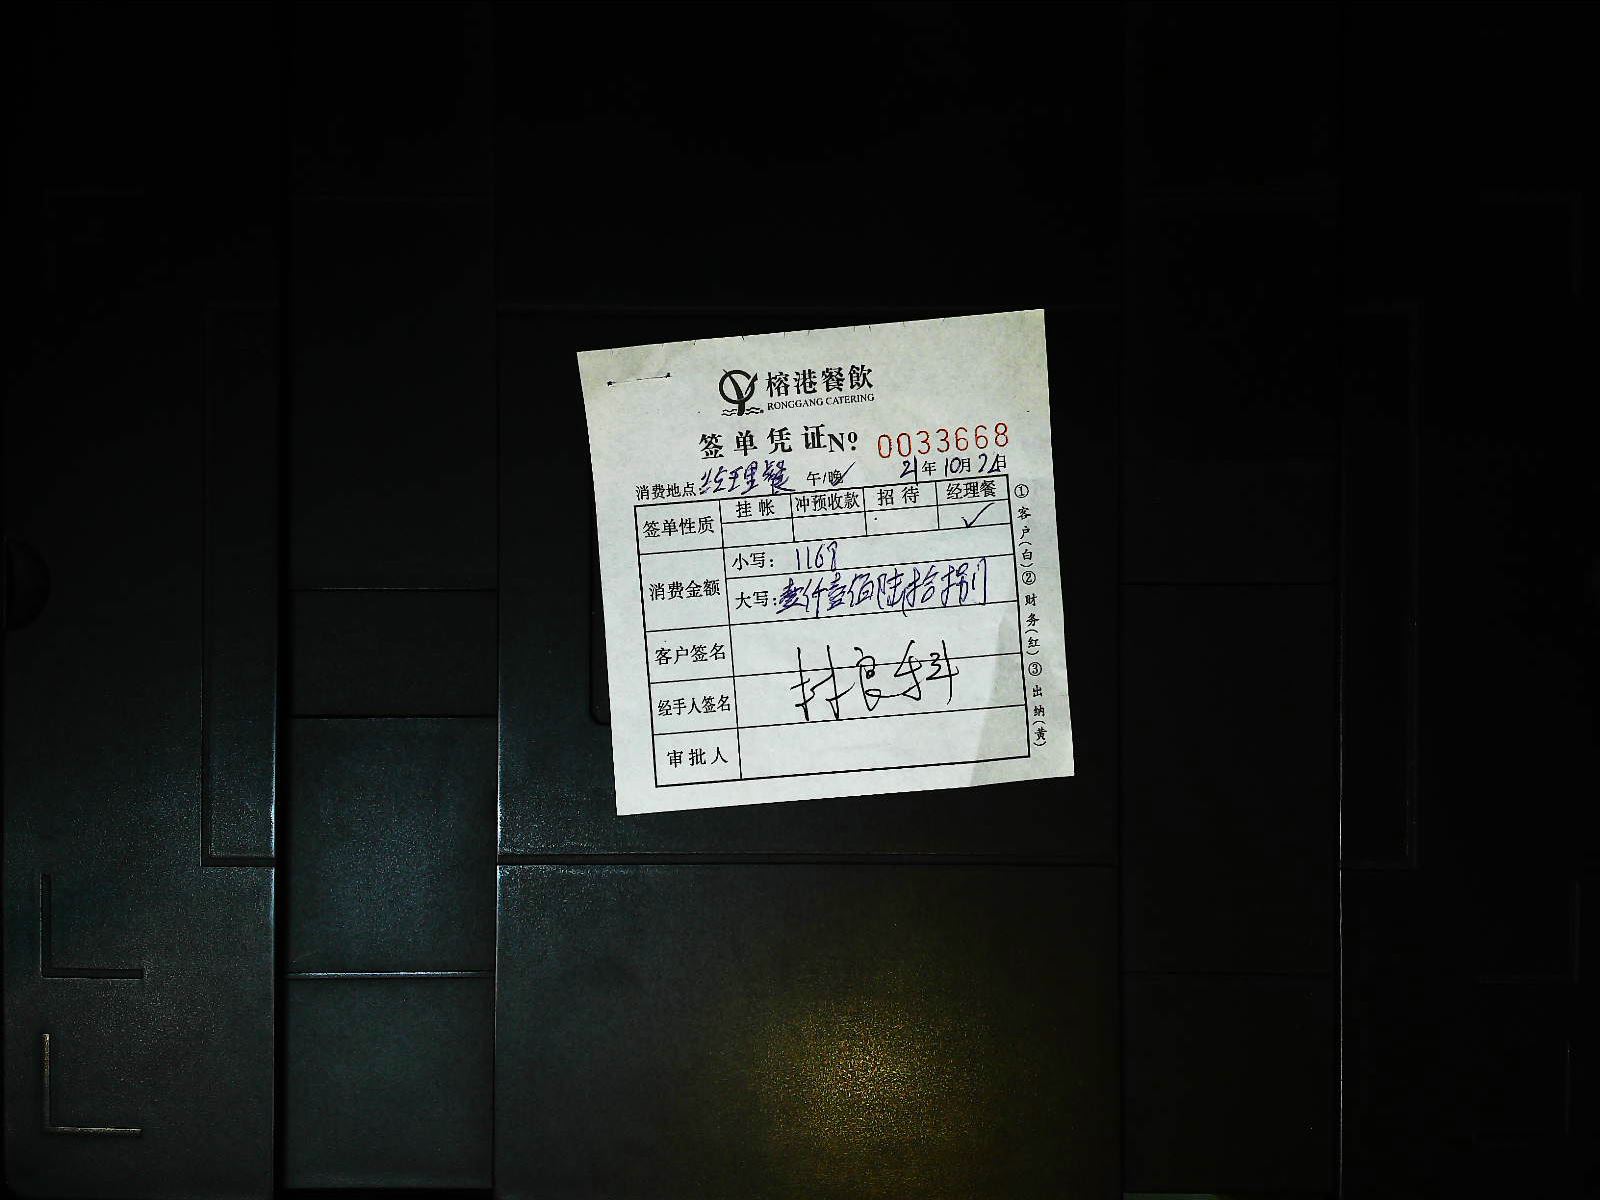 榕港餐飲
RONGGANG CATERING
签单凭证 Nº 0033668
消费地点 经理餐 午/晚✓ 21年10月22日
签单性质 挂帐 冲预收款 招待 经理餐
✓
消费金额 小写: 1168
大写: 壹仟壹佰陆拾捌
客户签名
林良科
经手人签名
审批人
①客户(白)②财务(红)③出纳(黄)